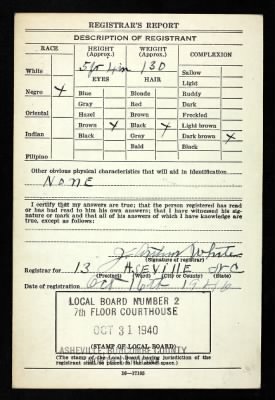 REGISTRAR'S REPORT
DESCRIPTION OF REGISTRANT
RACE HEIGHT (Approx.) WEIGHT (Approx.) COMPLEXION
5 ft 4 in 130
White Sallow
EYES HAIR Light
Negro x Blue Blonde Ruddy
Gray Red Dark
Oriental Hazel Brown Freckled
Brown x Black x Light brown
Indian Black Gray Dark brown x
Bald Black
Filipino
Other obvious physical characteristics that will aid in identification
NONE
I certify that my answers are true; that the person registered has read
or has had read to him his own answers; that I have witnessed his sig-
nature or mark and that all of his answers of which I have knowledge are
true, except as follows:
White
(Signature of registrar)
Registrar for 13 Asheville N C
(Precinct) (Ward) (City or County) (State)
Date of registration Oct 16th 1940
LOCAL BOARD NUMBER 2
7th FLOOR COURTHOUSE
OCT 31 1940
(STAMP OF LOCAL BOARD)
ASHEVILLE, BUNCOMBE COUNTY
(The stamp of the Local Board having jurisdiction of the
registrant shall be placed in the above space.)